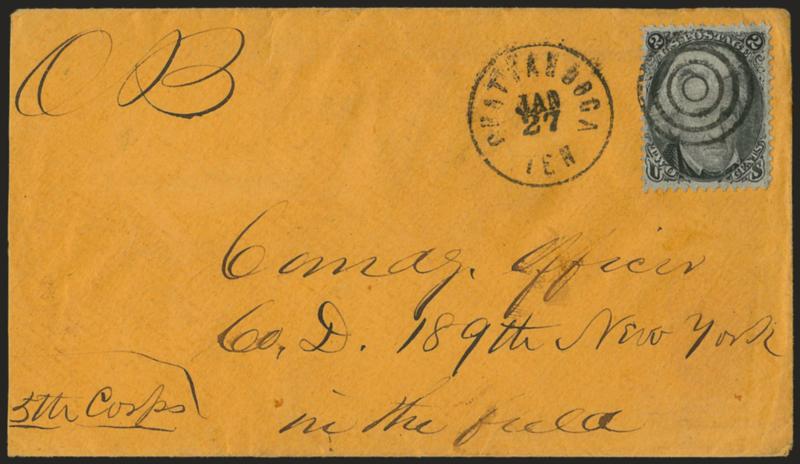 O B
CHATTANOOGA
JAN
27
TEN
2 U.S. POSTAGE 2
U S
Comdg. Officer
Co, D. 189th New York
in the field
5th Corps